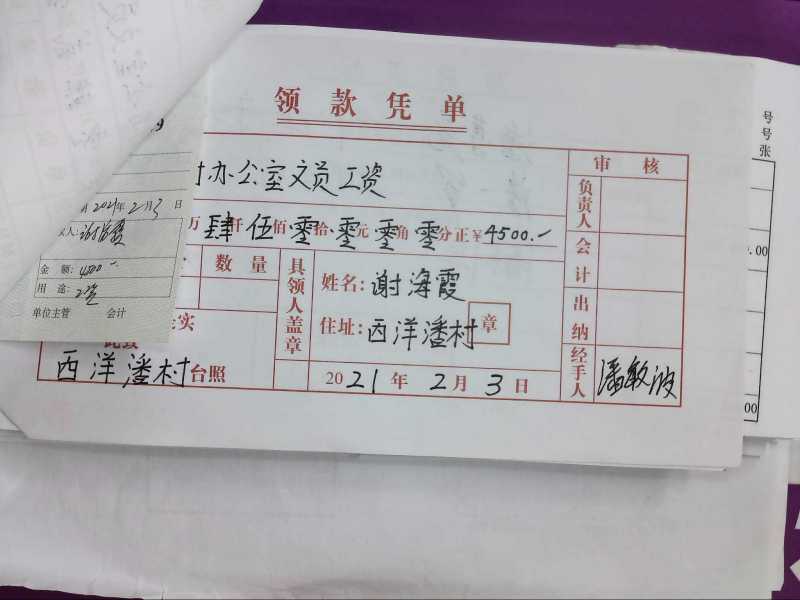 领款凭单
村办公室文员工资
万肆仟伍佰零拾零元零角零分正¥4500.-
审核
负责人
会计
出纳
经手人 潘敏波
数量
具领人盖章
姓名:谢海霞
住址:西洋潘村
章
实
此致
西洋潘村台照
2021年2月3日
2021年2月3日
人:谢海霞
金额:4500-
用途:工资
单位主管 会计
号
号
张
.00
00